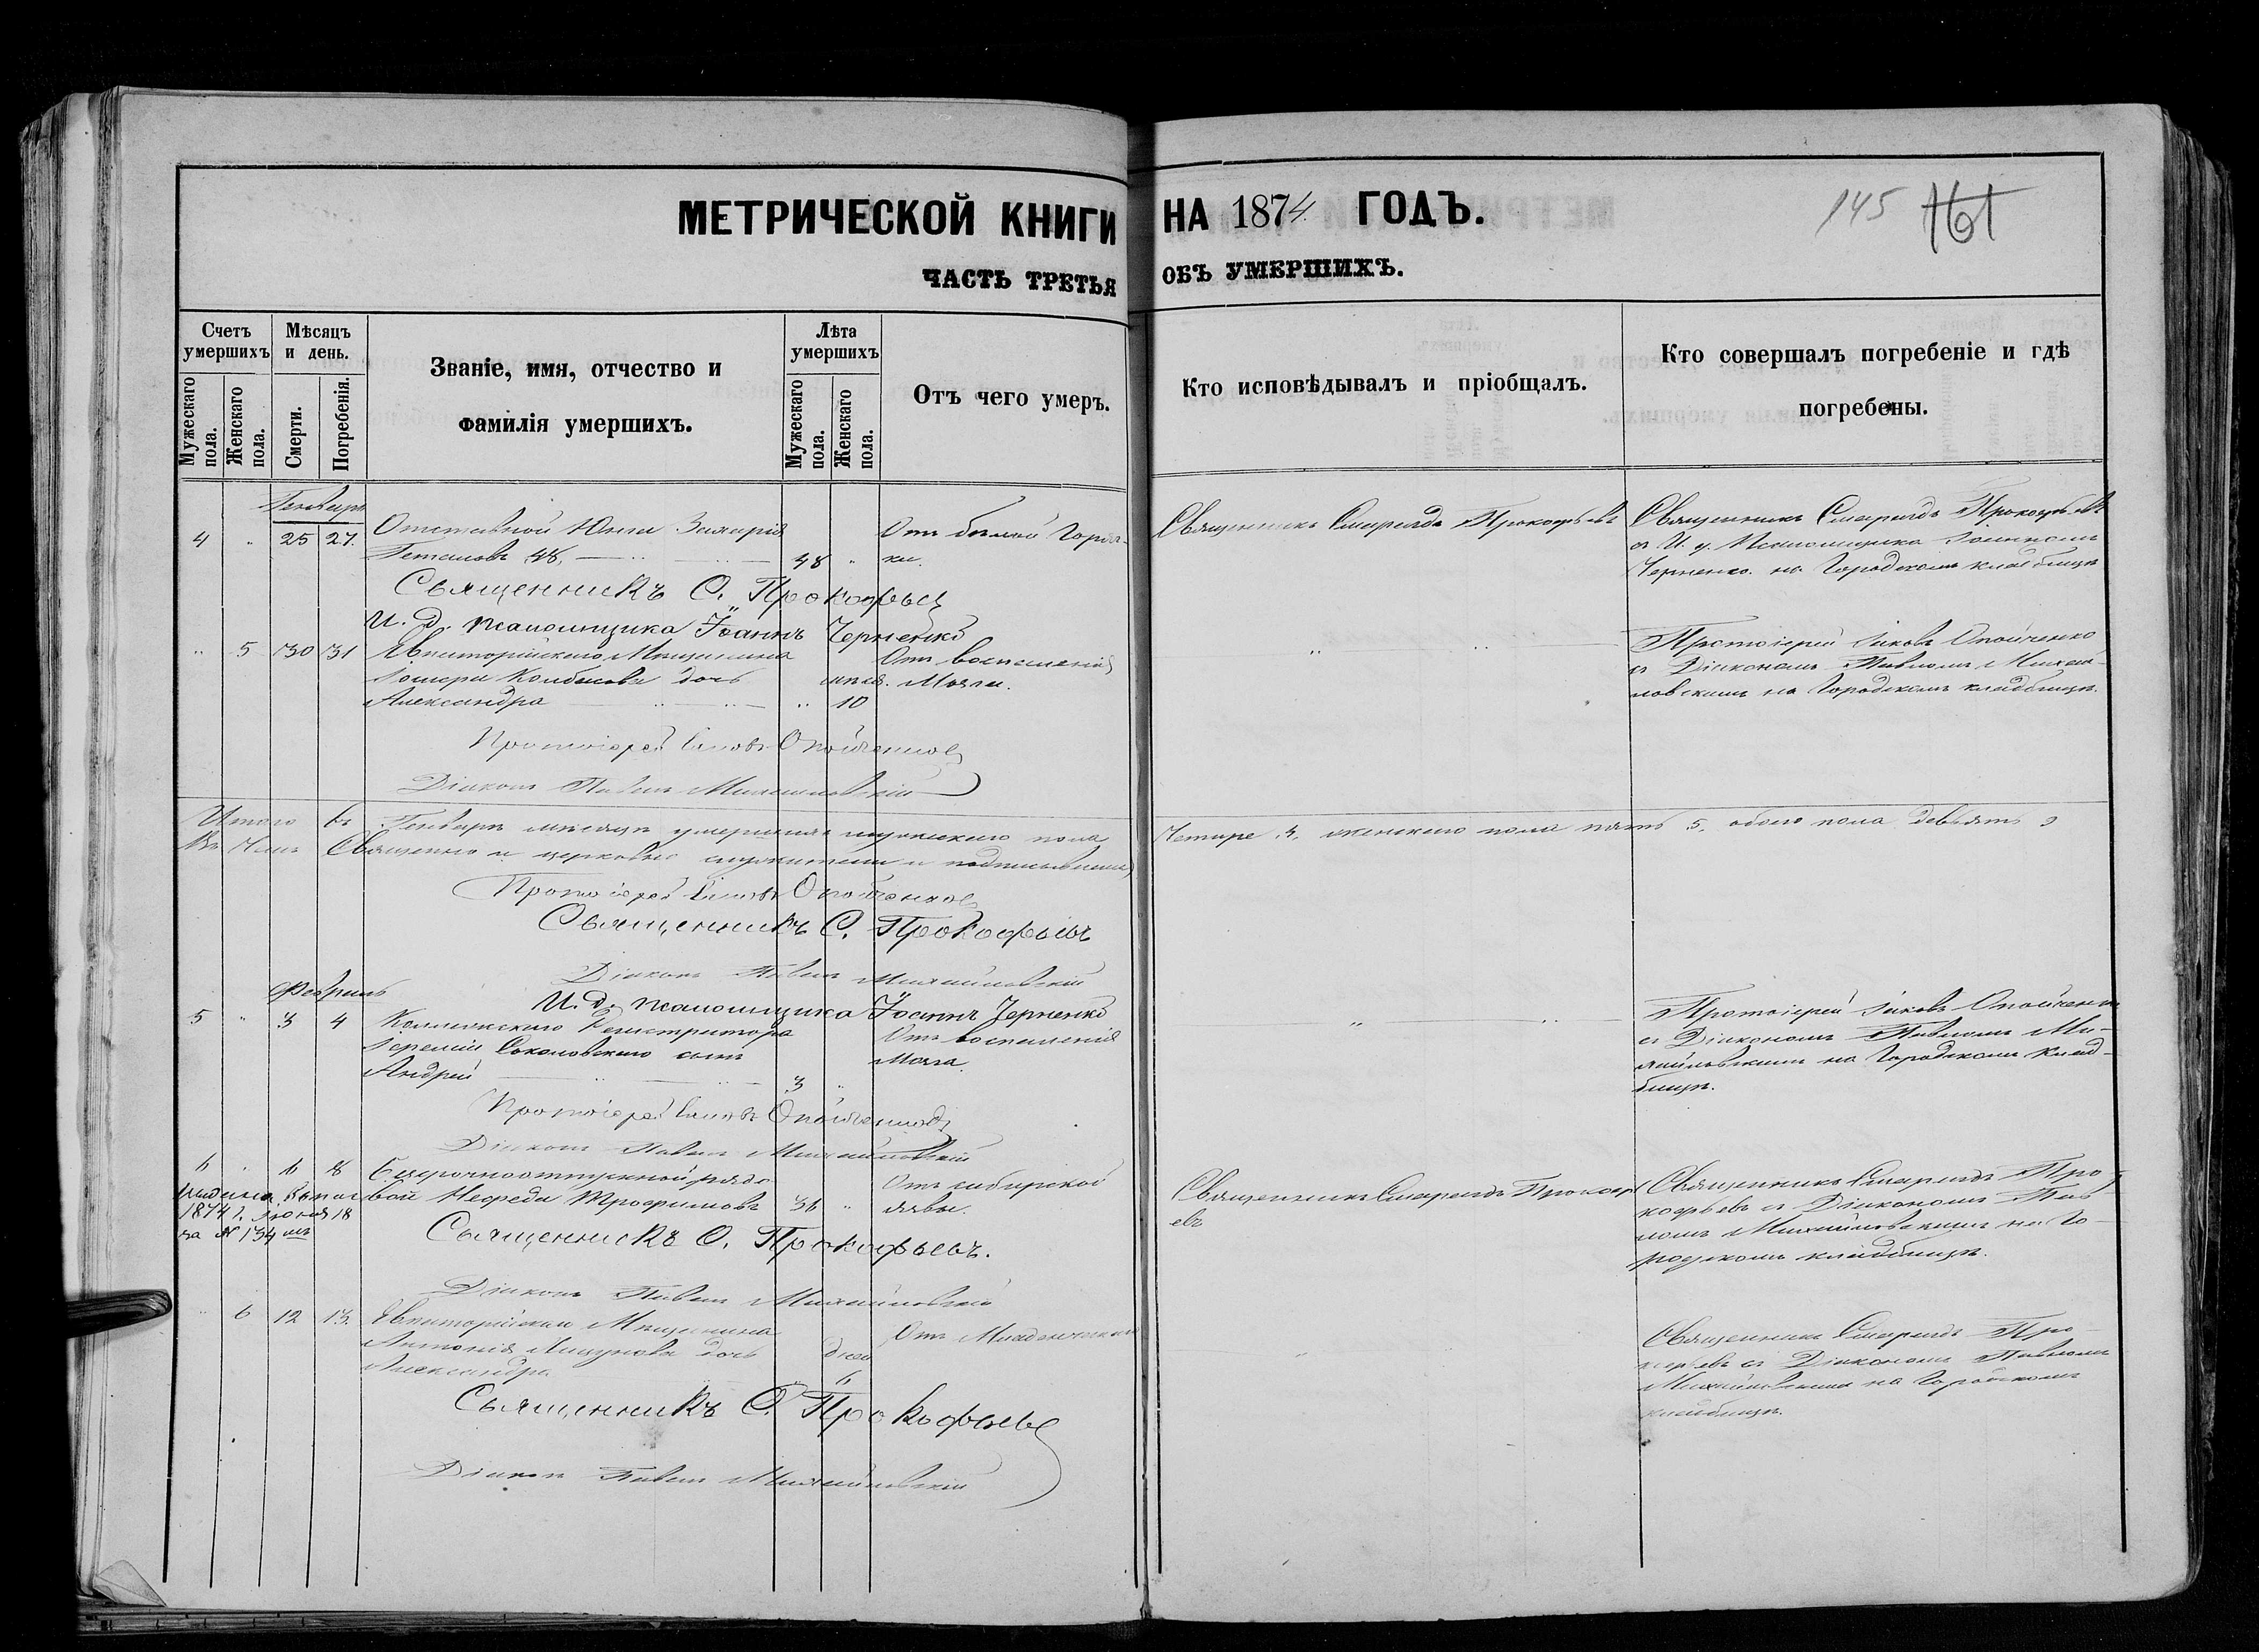 МЕТРИЧЕСКОЙ КНИГИ НА 1874 ГОДЪ.
145 161
ЧАСТЬ ТРЕТЬЯ ОБЪ УМЕРШИХЪ.
Счетъ умершихъ
Мужескаго пола.
Женскаго пола.
Мѣсяцъ и день.
Смерти.
Погребенія.
Званіе, имя, отчество и
фамилія умершихъ.
Лѣта умершихъ
Мужескаго пола.
Женскаго пола.
Отъ чего умеръ.
Кто исповѣдывалъ и пріобщалъ.
Кто совершалъ погребеніе и гдѣ
погребены.
Генварь
4 " 25 27.
Отставной Юнга Захарія
48 "
Отъ бѣлой горяч-
ки.
Священникъ Смарагдъ Прокофьевъ
Священникъ Смарагдъ Прокофьевъ
съ И. д. Псаломщика Іоанномъ
Черненко на Городскомъ кладбищѣ
Священникъ С. Прокофьевъ
И. д. псаломщика Іоаннъ Черненко
" 5 30 31
Евпаторійскаго Мѣщанина
дочь
Александра
мѣся.
" 10
Отъ воспаленія
Мозга.
Протоіерей Іаковъ Опойченко
съ Діакономъ Павломъ Михай-
ловскимъ на Городскомъ кладбищѣ.
Протоіерей Іаковъ Опойченко
Діаконъ Павелъ Михайловскій
Итого въ Генварѣ мѣсяцѣ умершихъ мужескаго пола
Четыре 4, женскаго пола пять 5, обоего пола девьять 9
Въ чемъ Священно и церковно служители и подписываемся
Протоіерей Іаковъ Опойченко
Священникъ С. Прокофьевъ
Діаконъ Павелъ Михайловскій
И. д. псаломщика Іоаннъ Черненко
Февраль
5 " 3 4
Коллежскаго Регистратора
Іеремія Соколовскаго сынъ
Андрей
3 "
Отъ воспаленія
Мозга.
Протоіерей Іаковъ Опойченко
съ Діакономъ Павломъ Ми-
хайловскимъ на Городскомъ клад-
бищѣ.
Протоіерей Іаковъ Опойченко
Діаконъ Павелъ Михайловскій
6 " 6 8
Безсрочноотпускной рядо-
вой Трофимовъ
36 "
Отъ сибирской
язвы.
Священникъ Смарагдъ Прокофь
евъ
Священникъ Смарагдъ Про-
кофьевъ съ Діакономъ Пав-
ломъ Михайловскимъ на Го-
родскомъ кладбищѣ.
1874 г. Іюня 18
за № 134
Священникъ С. Прокофьевъ.
Діаконъ Павелъ Михайловскій
" 6 12 13.
Мѣщанина
Антонія дочь
Александра
дней
6
Отъ Младенческаго
Священникъ Смарагдъ Про-
кофьевъ съ Діакономъ Павломъ
Михайловскимъ на Городскомъ
кладбищѣ.
Священникъ С. Прокофьевъ
Діаконъ Павелъ Михайловскій